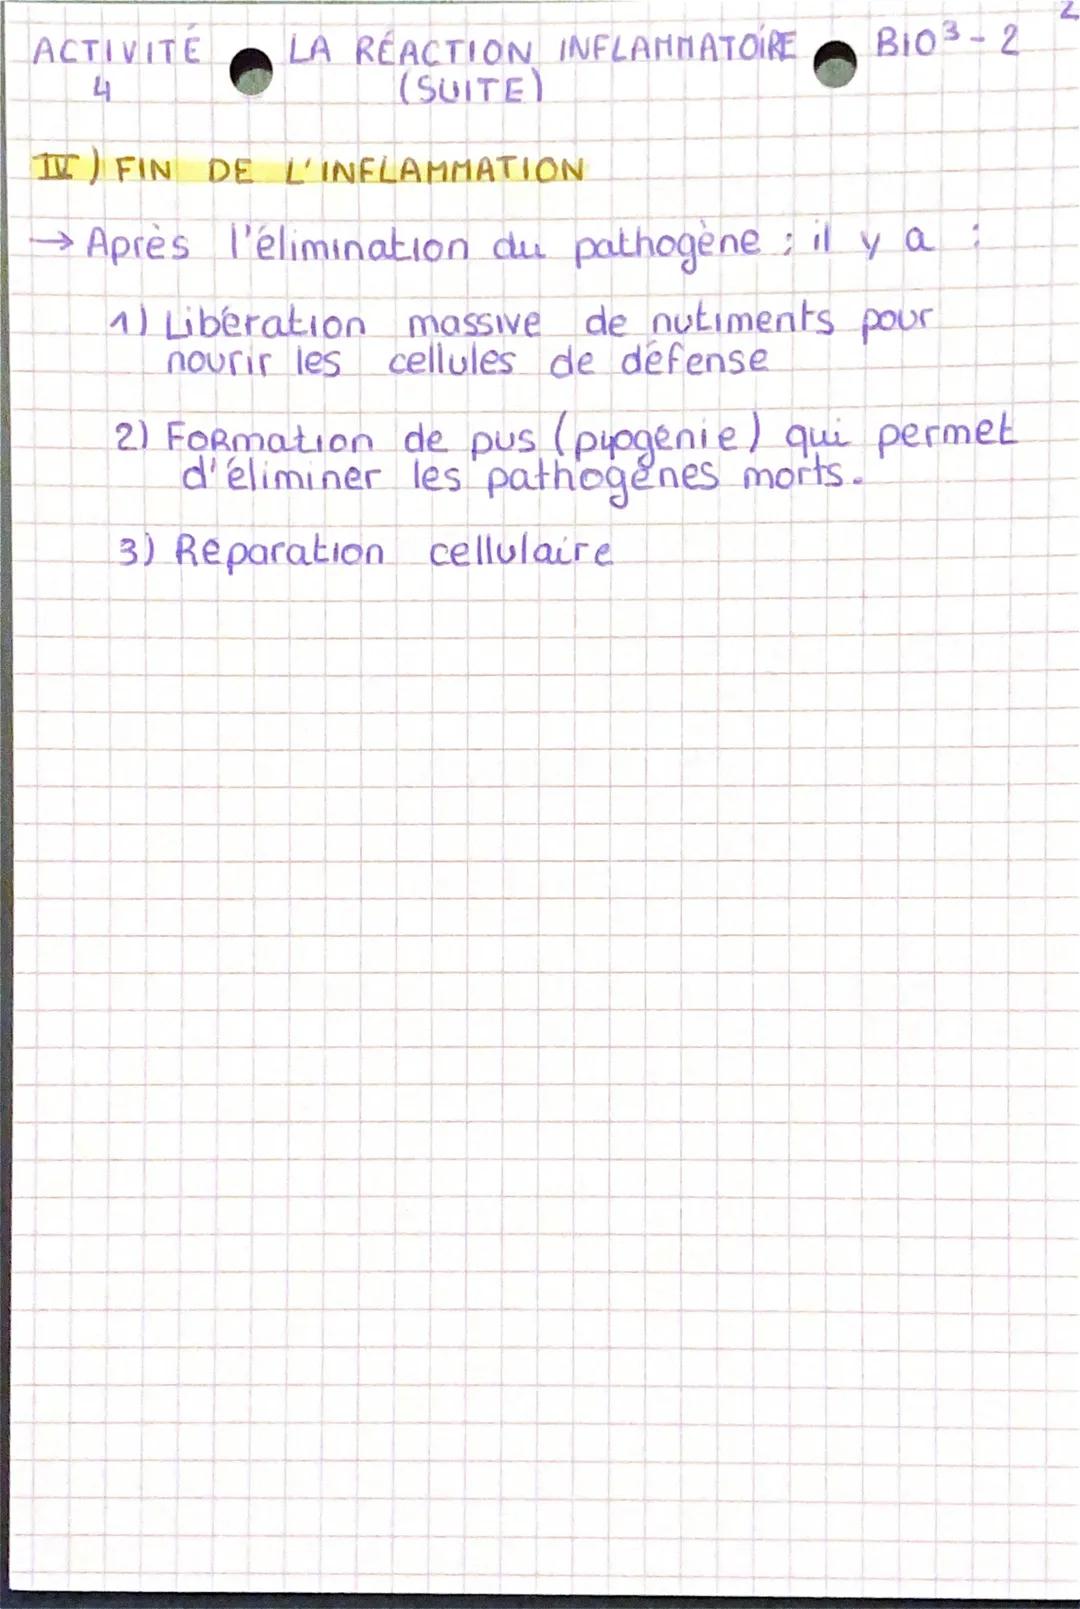 2
ACTIVITÉ LA RÉACTION INFLAMMATOIRE BIO3-2
4 (SUITE)
IV) FIN DE L'INFLAMMATION
→ Après l'élimination du pathogène ; il y a :
1) Libération massive de nutiments pour
nourir les cellules de défense
2) Formation de pus (pyogénie) qui permet
d'éliminer les pathogènes morts.
3) Réparation cellulaire